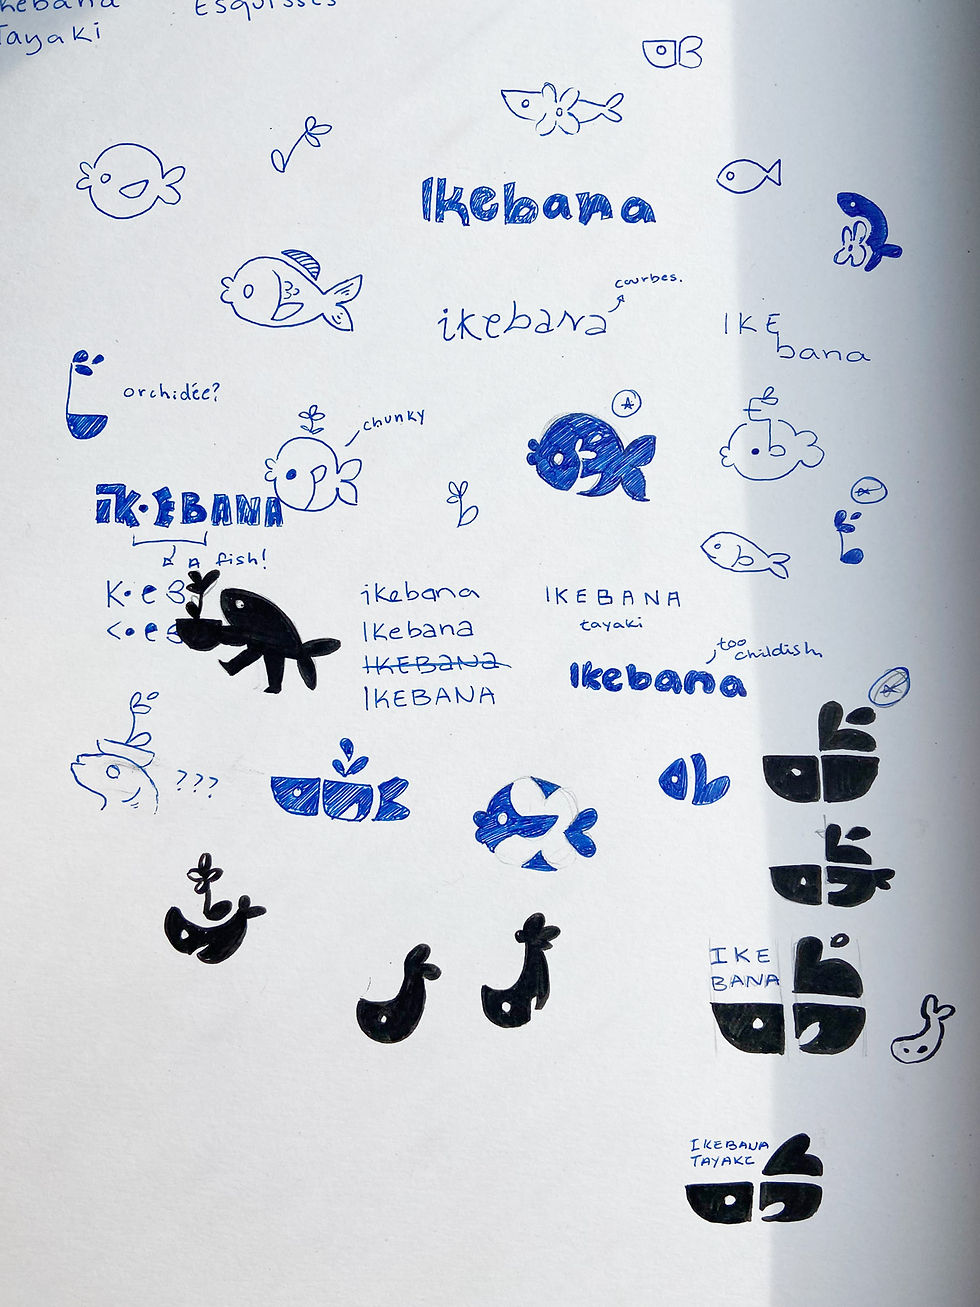 Ikebana Esquisses
Tayaki
Ikebana
courbes.
ikebana
IKE
bana
orchidée?
chunky
iK·EBANA
a fish!
K·eB
<·e
ikebana
Ikebana
IKEBANA
IKEBANA
IKEBANA
tayaki
too
childish
Ikebana
???
IKE
BANA
IKEBANA
TAYAKI